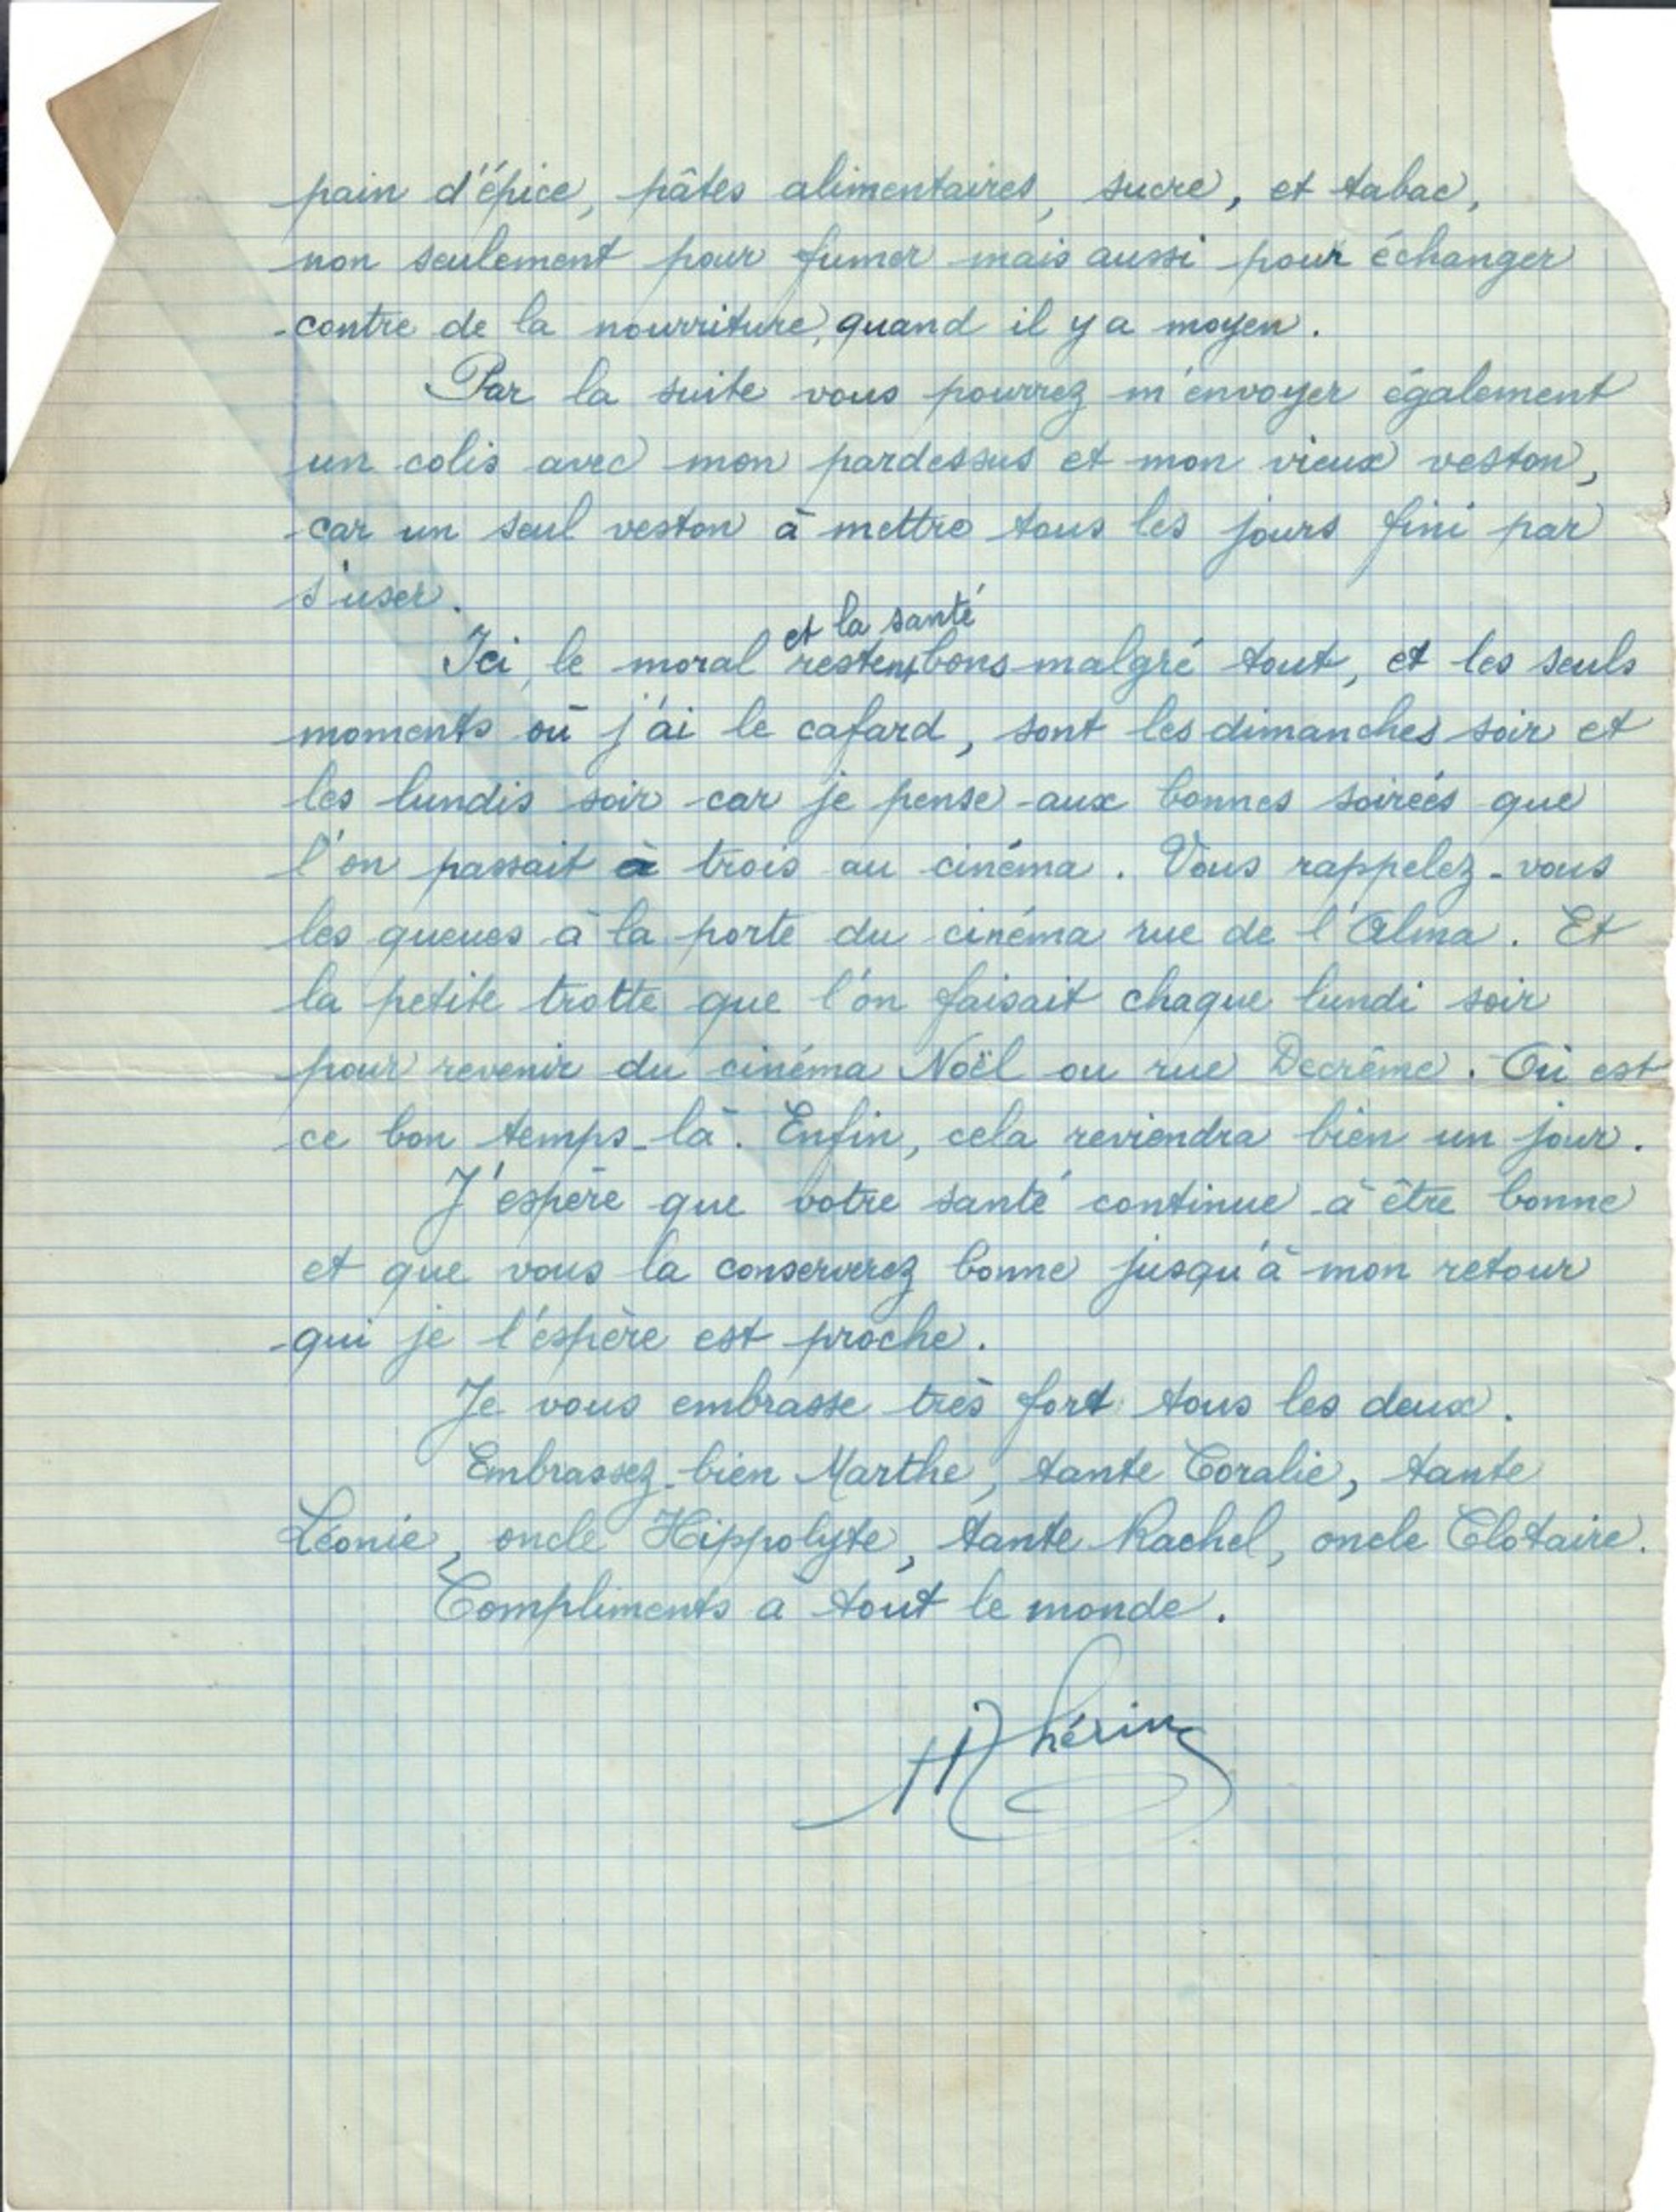 pain d'épice, pâtes alimentaires, sucre, et tabac,
non seulement pour fumer mais aussi pour échanger
contre de la nourriture, quand il y a moyen.
Par la suite vous pourrez m'envoyer également
un colis avec mon pardessus et mon vieux veston,
car un seul veston à mettre tous les jours fini par
s'user.
et la santé
Ici, le moral restent bons malgré tout, et les seuls
moments où j'ai le cafard, sont les dimanches soir et
les lundis soir car je pense aux bonnes soirées que
l'on passait à trois au cinéma. Vous rappelez-vous
les queues à la porte du cinéma rue de l'Alma. Et
la petite trotte que l'on faisait chaque lundi soir
pour revenir du cinéma Noël ou rue Decrême. Où est
ce bon temps-là. Enfin, cela reviendra bien un jour.
J'espère que votre santé continue à être bonne
et que vous la conserverez bonne jusqu'à mon retour
qui je l'espère est proche.
Je vous embrasse très fort tous les deux.
Embrassez-bien Marthe, tante Coralie, tante
Léonie, oncle Hippolyte, tante Rachel, oncle Clotaire.
Compliments à tout le monde.